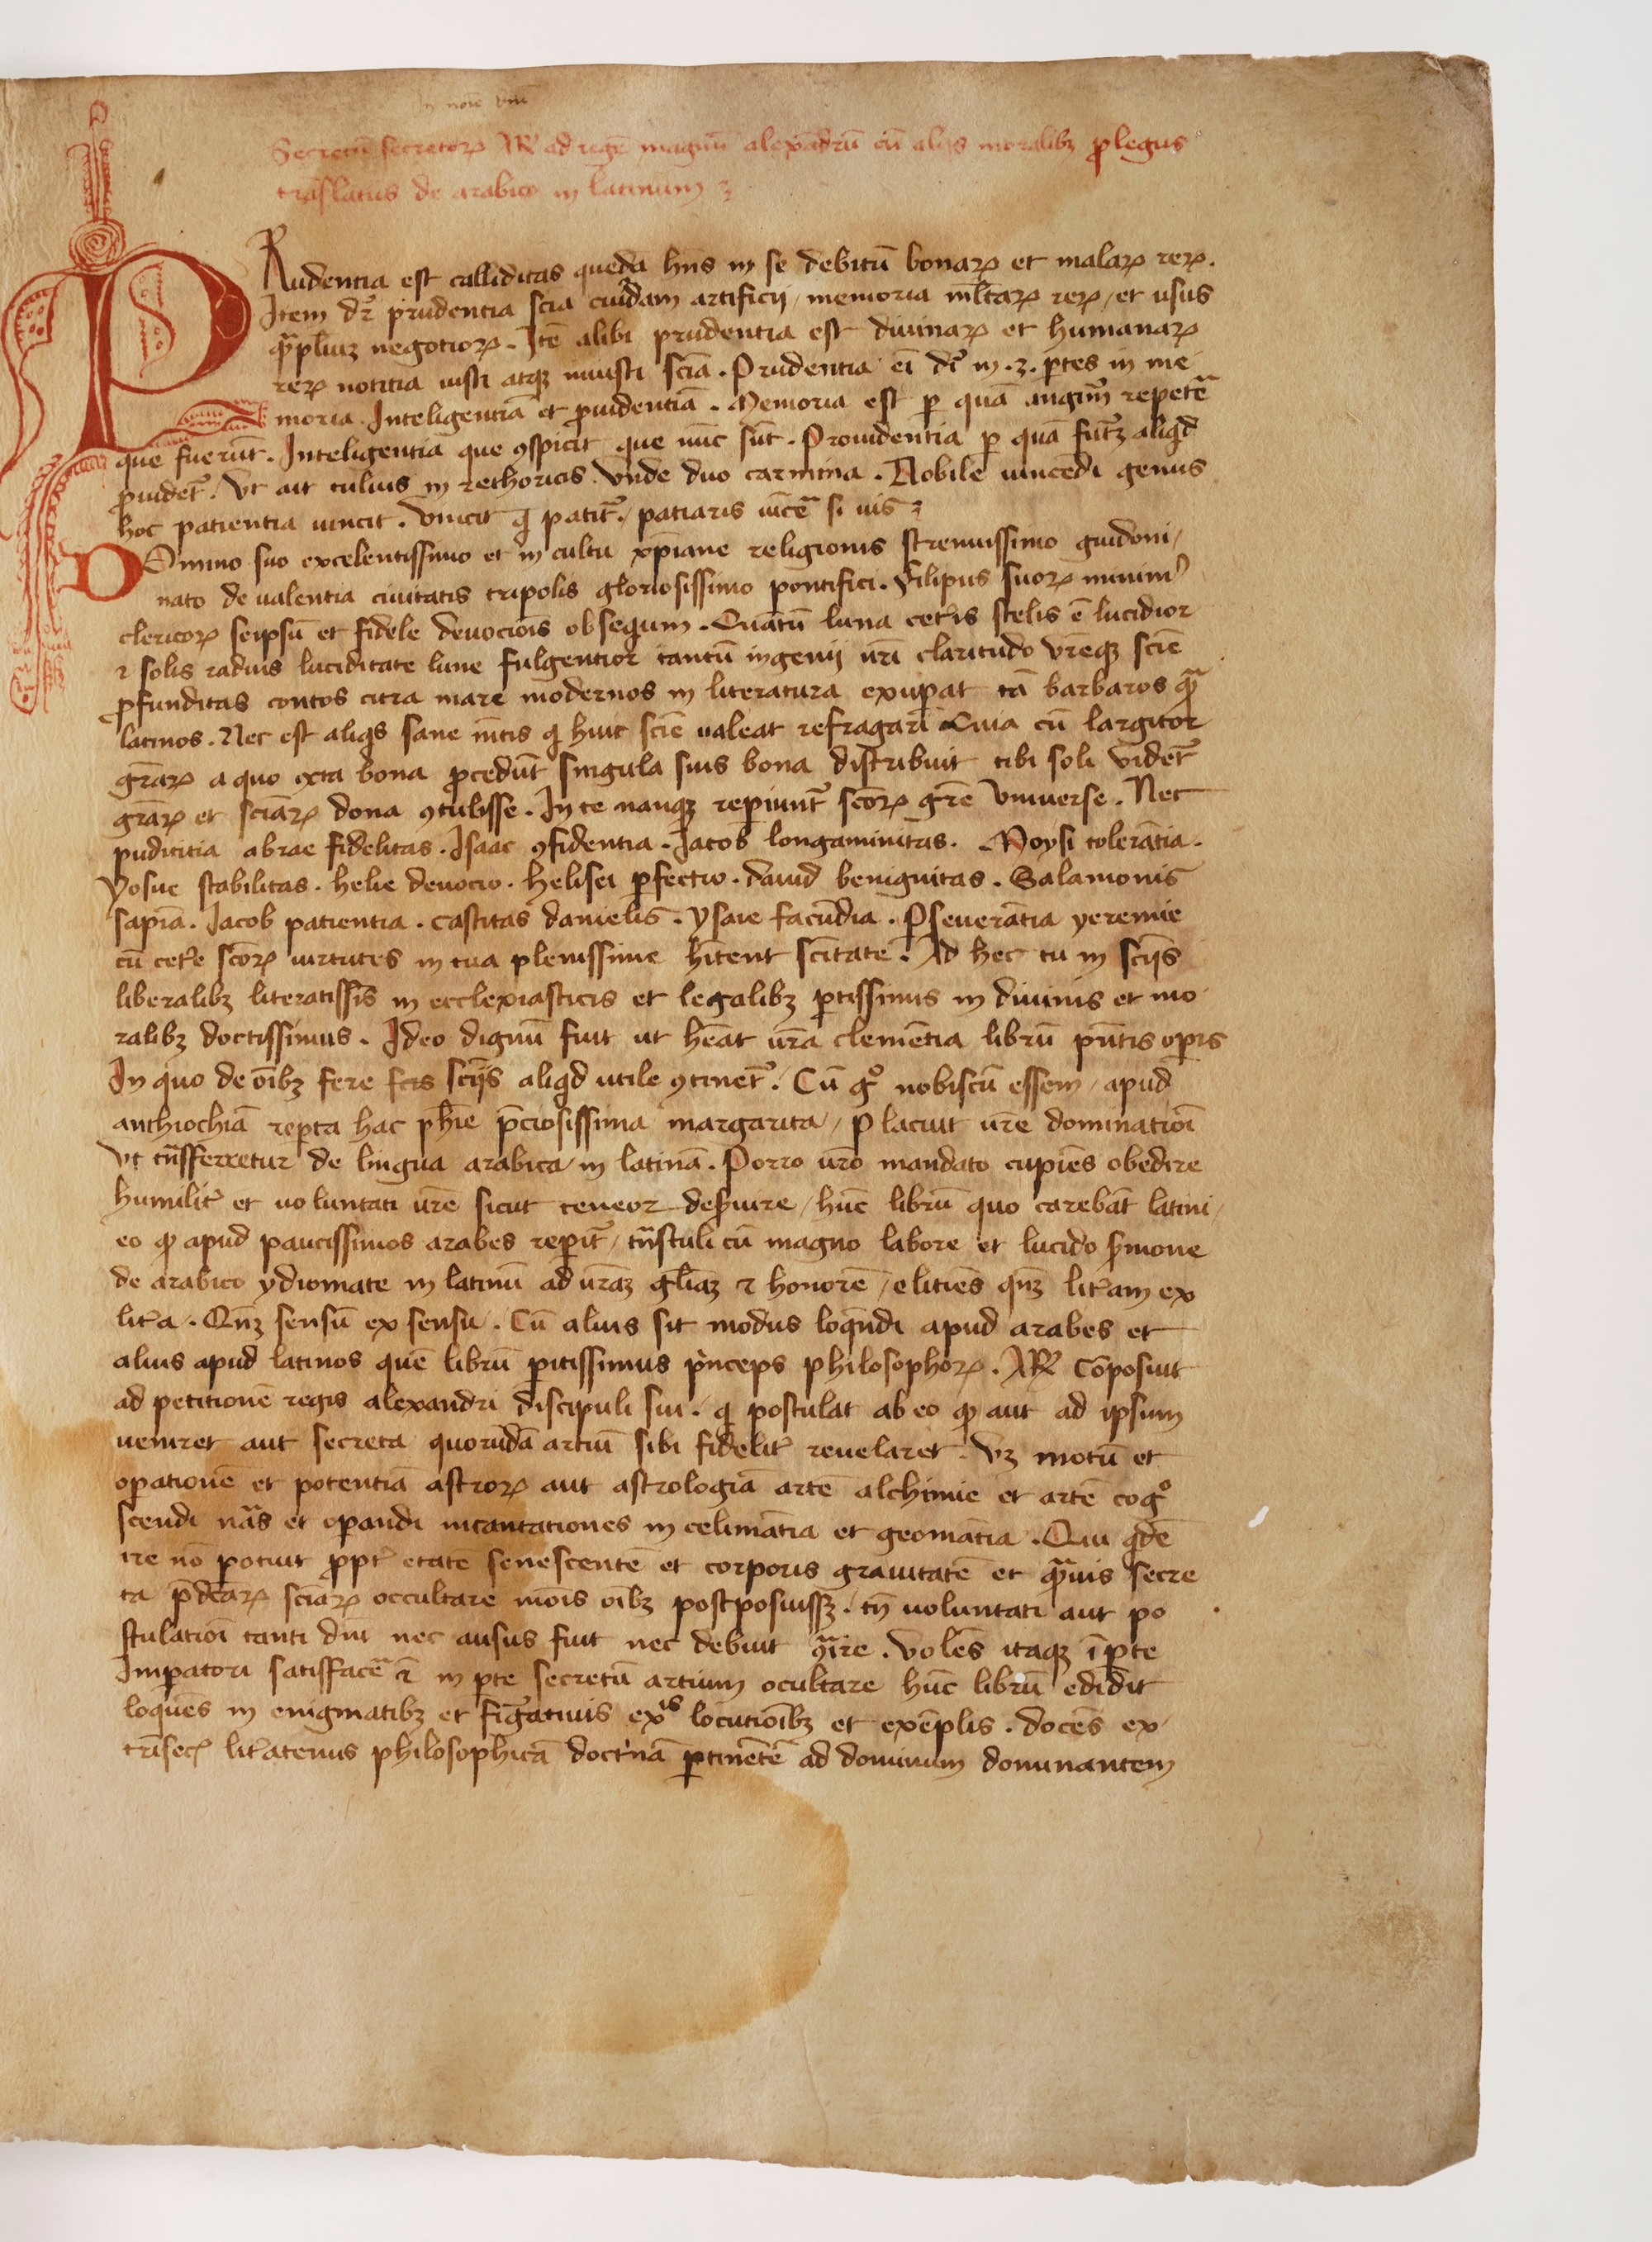 Secretū secretorꝝ Ar̄ ad regē magnū alexādrū cū alijs moralibꝫ ꝓlegus
trāslatus de arabico in latinum
PRudentia est calliditas quedā hn̄s in se debitū bonarꝝ et malarꝝ rerꝝ.
Item dr̄ prudentia scīa cuiꝰdam artificij / memoria ml̄tarꝝ rerꝝ / et usus
negotiorꝝ. Itē alibi prudentia est diuinarꝝ et humanarꝝ
rerꝝ notitia iusti atqꝫ iniusti sciā. Prudentia eī dr̄ in .3. ꝑtes in me
moria. Inteligentiā et ꝓuidentiā. Memoria est ꝑ quā repetē
que fuerūt. Inteligentiā que ꝯspicit que nūc sūt. Prouidentia ꝑ quā futꝫ aliqd
ꝓuidet̄. Vt ait tulius in rethoricis. Vnde duo carmina. Nobile uincēdi genus
hoc patientia uincit. Vincit q̄ patit̄. / patiaris uīcē si uis
DOmino suo excelentissimo et in cultu xp̄iane religionis strenuissimo guidoni /
nato de ualentia ciuitatis tripolis gloriosissimo pontifici. Filipus suorꝝ minimꝰ
clericorꝝ seipsū et fidele deuociōis obseqium. Quātū luna cet̄is stelis ē lucidior
⁊ solis radius luciditate lune fulgentior tantū ingenij ur̄i claritudo vr̄eqꝫ sciē
ꝓfunditas contos citra mare modernos in literatura exupat tā barbaros q̄
latinos. Nec est aliqs sane mētis q̄ huic sciē ualeat refragari Quia cū largitor
gr̄arꝝ a quo cxta bona ꝓcedūt singula suis bona distribuit tibi soli videt̄
gr̄arꝝ et sciārꝝ dona ꝯtulisse. In te nanqꝫ reꝑiunt̄ scōrꝝ gr̄e vniuerse. Nec
pudicitia abrae fidelitas. Isaac ꝯfidentia. Jacob longaminitas. Moysi tolerātia.
Yosue stabilitas. helie deuocio. helisei ꝑfectio. dauid benignitas. Salamonis
sapiā. Jacob patientia. castitas danielis. ysaie facūdia. Pseuerātia yeremie
cū cet̄e scōrꝝ uirtutes in tua plenissime hītent scītate. Ad hec tu in scijs
liberalibꝫ literatissīs in ecclexiasticis et legalibꝫ ꝑtissimus in diuinis et mo
ralibꝫ doctissimus. Ideo dignū fuit ut hēat ur̄a clemētia librū pn̄tis oꝑis
In quo de oībꝫ fere fcis scijs aliqd utile ꝯtinet̄. Cū gͦ nobiscū essem / apud
anthiochiā reꝑta hac ph̄ie p̄ciosissima margarita / Placuit ur̄e dominatiōi
Vt tn̄sfferretur de lingua arabica in latinā. Porro ur̄o mandato cupiēs obedire
humilit̄ et uoluntati ur̄e sicut teneor deseruire / hūc librū quo carebāt latini /
eo ꝙ apud paucissimos arabes reꝑit̄ / tn̄stuli cū magno labore et lucido sermone
de arabico ydiomate in latinū ad ur̄aꝫ gl̄iaꝫ ⁊ honorē / elitiēs qn̄ꝫ lit̄am ex
lit̄a. Qn̄ꝫ sensū ex sensu. Cū alius sit modus loqn̄di apud arabes et
alius apud latinos quē librū ꝑitissimus pͥnceps philosophorꝝ. Ar̄ cōposuit
ad petitionē regis alexandri discipuli sui. q̄ postulat ab eo ꝙ aut ad ipsum
ueniret aut secreta quorūdā artiū sibi fidelit̄ reuelaret. vꝫ motū et
oꝑationē et potentiā astrorꝝ aut astrologiā artē alchimie et artē cogͦ
scendi nās et oꝑandi incantationes in celimātia et geomātia. Qui qdē
ire nō potuit ꝓpt̄ etatē senescentē et corporis grauitatē et q̄uis secre
ta p̄dcārꝝ sciārꝝ occultare mōis oībꝫ postposuissꝫ. tn̄ uoluntati aut po
stulatiōi tanti dn̄i nec ausus fuit nec debuit ꝯ̄ire. volēs itaqꝫ ī ꝑte
Imꝑatori satisfacē ⁊ in ꝑte secretū artium ocultare hūc librū edidit
loquēs in enigmatibꝫ et figatiuis exͥˢ locutiōibꝫ et exēplis. docēs ex
trīsecꝰ lit̄atenus philosophicā doctͥnā ꝑtinētē ad dominum dominantem